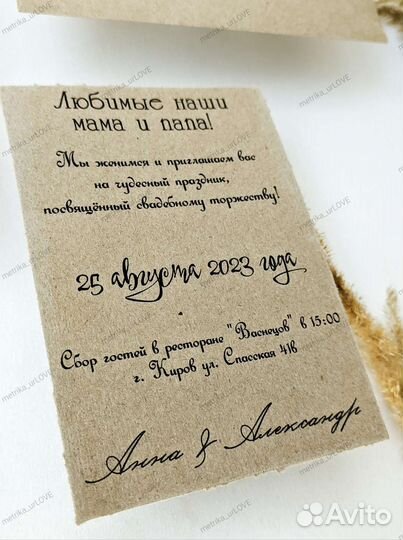 Любимые наши
мама и папа!
Мы женимся и приглашаем вас
на чудесный праздник,
посвящённый свадебному торжеству!
25 августа 2023 года
Сбор гостей в ресторане "Васнецов" в 15:00
г. Киров ул. Спасская 41в
Анна & Александр
metrika_urLOVE
Avito